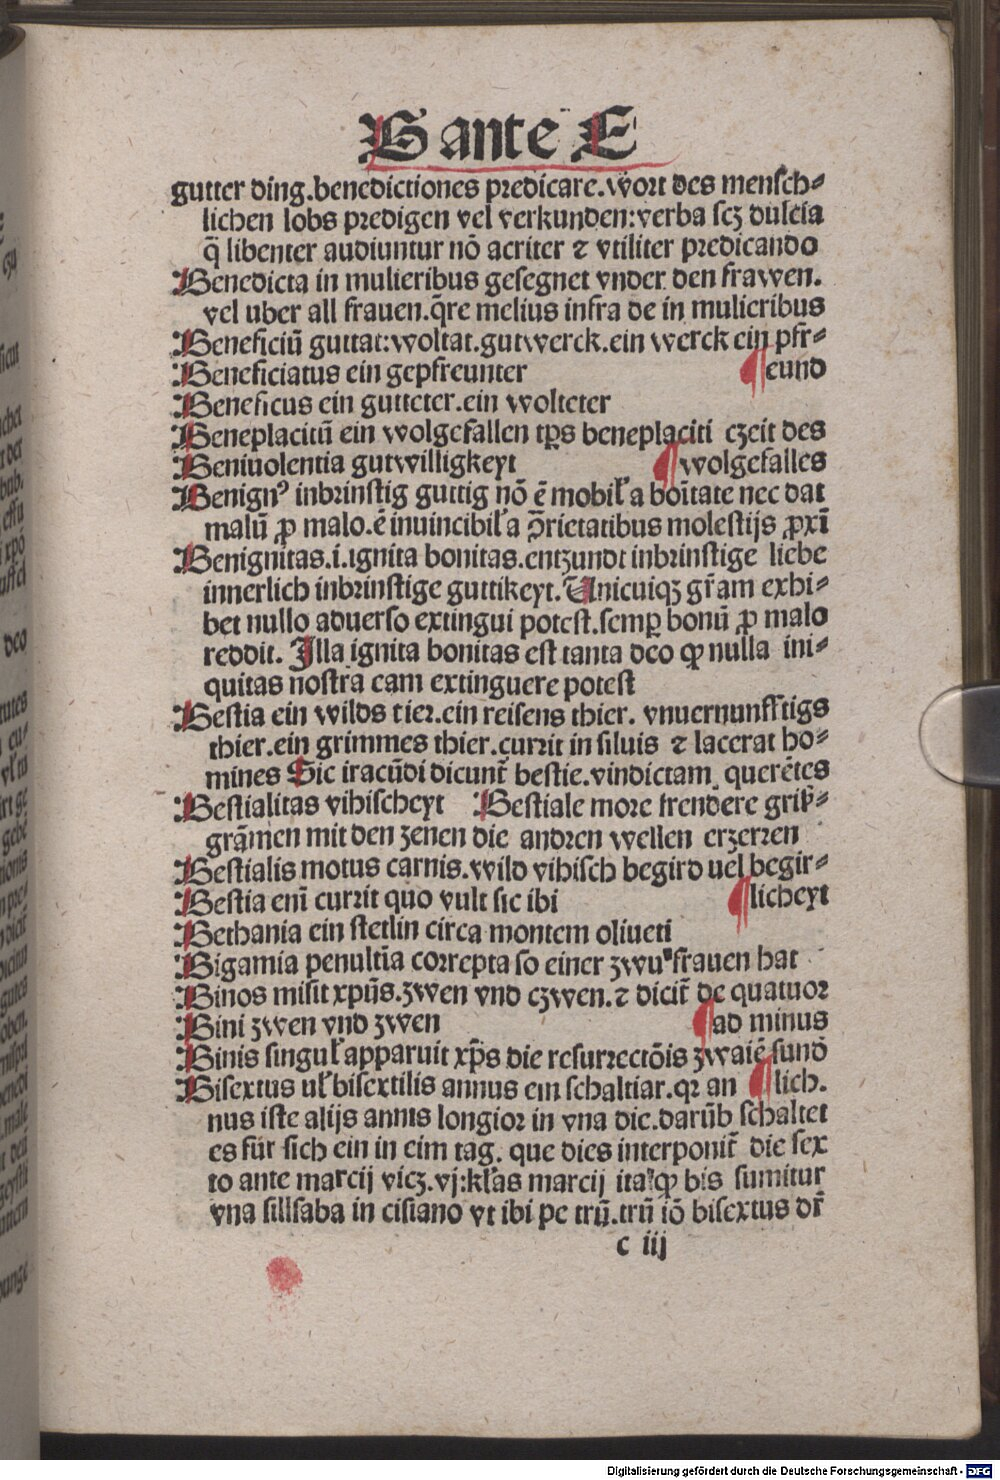 B ante E
gutter ding.benedictiones predicare.wort des mensch⸗
lichen lobs predigen vel verkunden:verba scʒ dulcia
q̄ libenter audiuntur nō acriter ⁊ vtiliter predicando
Benedicta in mulieribus gesegnet vnder den frawen.
vel uber all frauen.q̄re melius infra de in mulieribus
Beneficiū guttat:woltat.gutwerck.ein werck ein pfr⸗
Beneficiatus ein gepfreunter ¶eund
Beneficus ein gutteter.ein wolteter
Beneplacitū ein wolgefallen tp̄s beneplaciti czeit des
Beniuolentia gutwilligkeyt ¶wolgefalles
Benignꝰ inbrinstig guttig nō ē mobił a boītate nec dat
malū ꝓ malo.ē inuincibił a ꝓrietatibus molestijs ꝓxī
Benignitas.i.ignita bonitas.entzundt inbrinstige liebe
innerlich inbrinstige guttikeyt.Unicuiqʒ gr̄am exhi⸗
bet nullo aduerso extingui potest.semꝑ bonū ꝓ malo
reddit. Illa ignita bonitas est tanta deo ꝙ nulla ini⸗
quitas nostra eam extinguere potest
Bestia ein wilds tier.ein reisens thier. vnuernunfftigs
thier.ein grimmes thier.currit in siluis ⁊ lacerat ho⸗
mines Sic iracūdi dicunt̄ bestie.vindictam querētes
Bestialitas vihischeyt Bestiale more frendere grib̄⸗
grāmen mit den zenen die andren wellen erzerren
Bestialis motus carnis.wild vihisch begird uel begir⸗
Bestia enī currit quo vult sic ibi ¶licheyt
Bethania ein stetlin circa montem oliueti
Bigamia penultīa correpta so einer zwu frauen hat
Binos misit xp̄us.zwen vnd czwen.⁊ dicit̄ de quatuor
Bini zwen vnd zwen ¶ad minus
Binis singuł apparuit xp̄s die resurrectōis zwaiē sund
Bisextus uł bisextilis annus ein schaltiar.qꝛ an ¶lich.
nus iste alijs annis longior in vna die.darūb schaltet
es für sich ein in eim tag. que dies interponit̄ die sex
to ante marcij vicʒ.vj:kłas marcij ita ꝙ bis sumitur
vna sillaba in cisiano vt ibi pe trū.trū iō bisextus dr̄
c iij
Digitalisierung gefördert durch die Deutsche Forschungsgemeinschaft - DFG